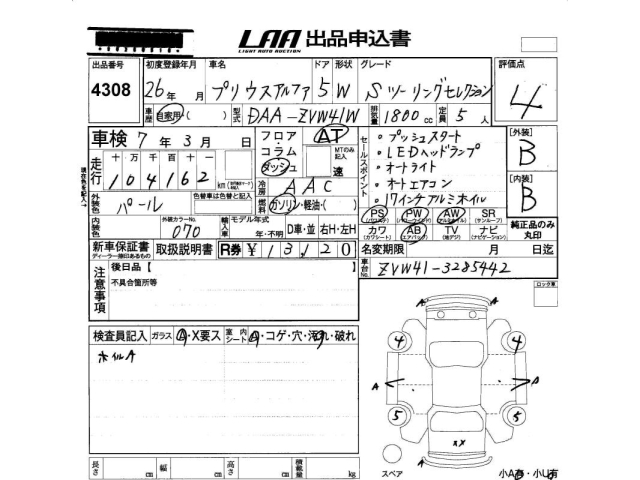 LAA 出品申込書
LIGHT AUTO AUCTION
出品番号 初度登録年月 車名 ドア 形状 グレード 評価点
4308 26年 月 プリウスアルファ 5 W Sツーリングセレクション 4
車歴 自家用・( ) 型式 DAA-ZVW41W 排気量 1800cc 定員 5人
車検 7年 3月 日 フロア・コラム・ダッシュ AT MTのみ記入 速
セールスポイント
・プッシュスタート
・LEDヘッドランプ
・オートライト
・オートエアコン
・17インチアルミホイル
[外装] B
[内装] B
走行 十 万 千 百 十
104162 km
冷房 AAC
外装色 パール 色替車は色替と記入 燃料 ガソリン・軽油・( )
内装色 外装カラーNO 070 輸入車 モデル年式 年・不明 D車・並 右H・左H
PS PW AW SR (サンルーフ)
カワ (カワシート) AB (エアバッグ) TV (地デジ) ナビ (ナビゲーション)
純正品のみ丸印
新車保証書 ディーラー捺印あるもの 取扱説明書 R券 ¥13,120
名変期限 月 日迄
車台No ZVW41-3285442
注意事項 後日品【 】
不具合箇所等
ロック車
検査員記入 ガラス A・X要ス 室内シート A・コゲ・穴・汚れ・破れ
ホイルA
A A
4 4
A A
5 5
XX
スペア
小Aあり・小Uあり
長さ cm 幅 cm 高さ cm 積載量 kg